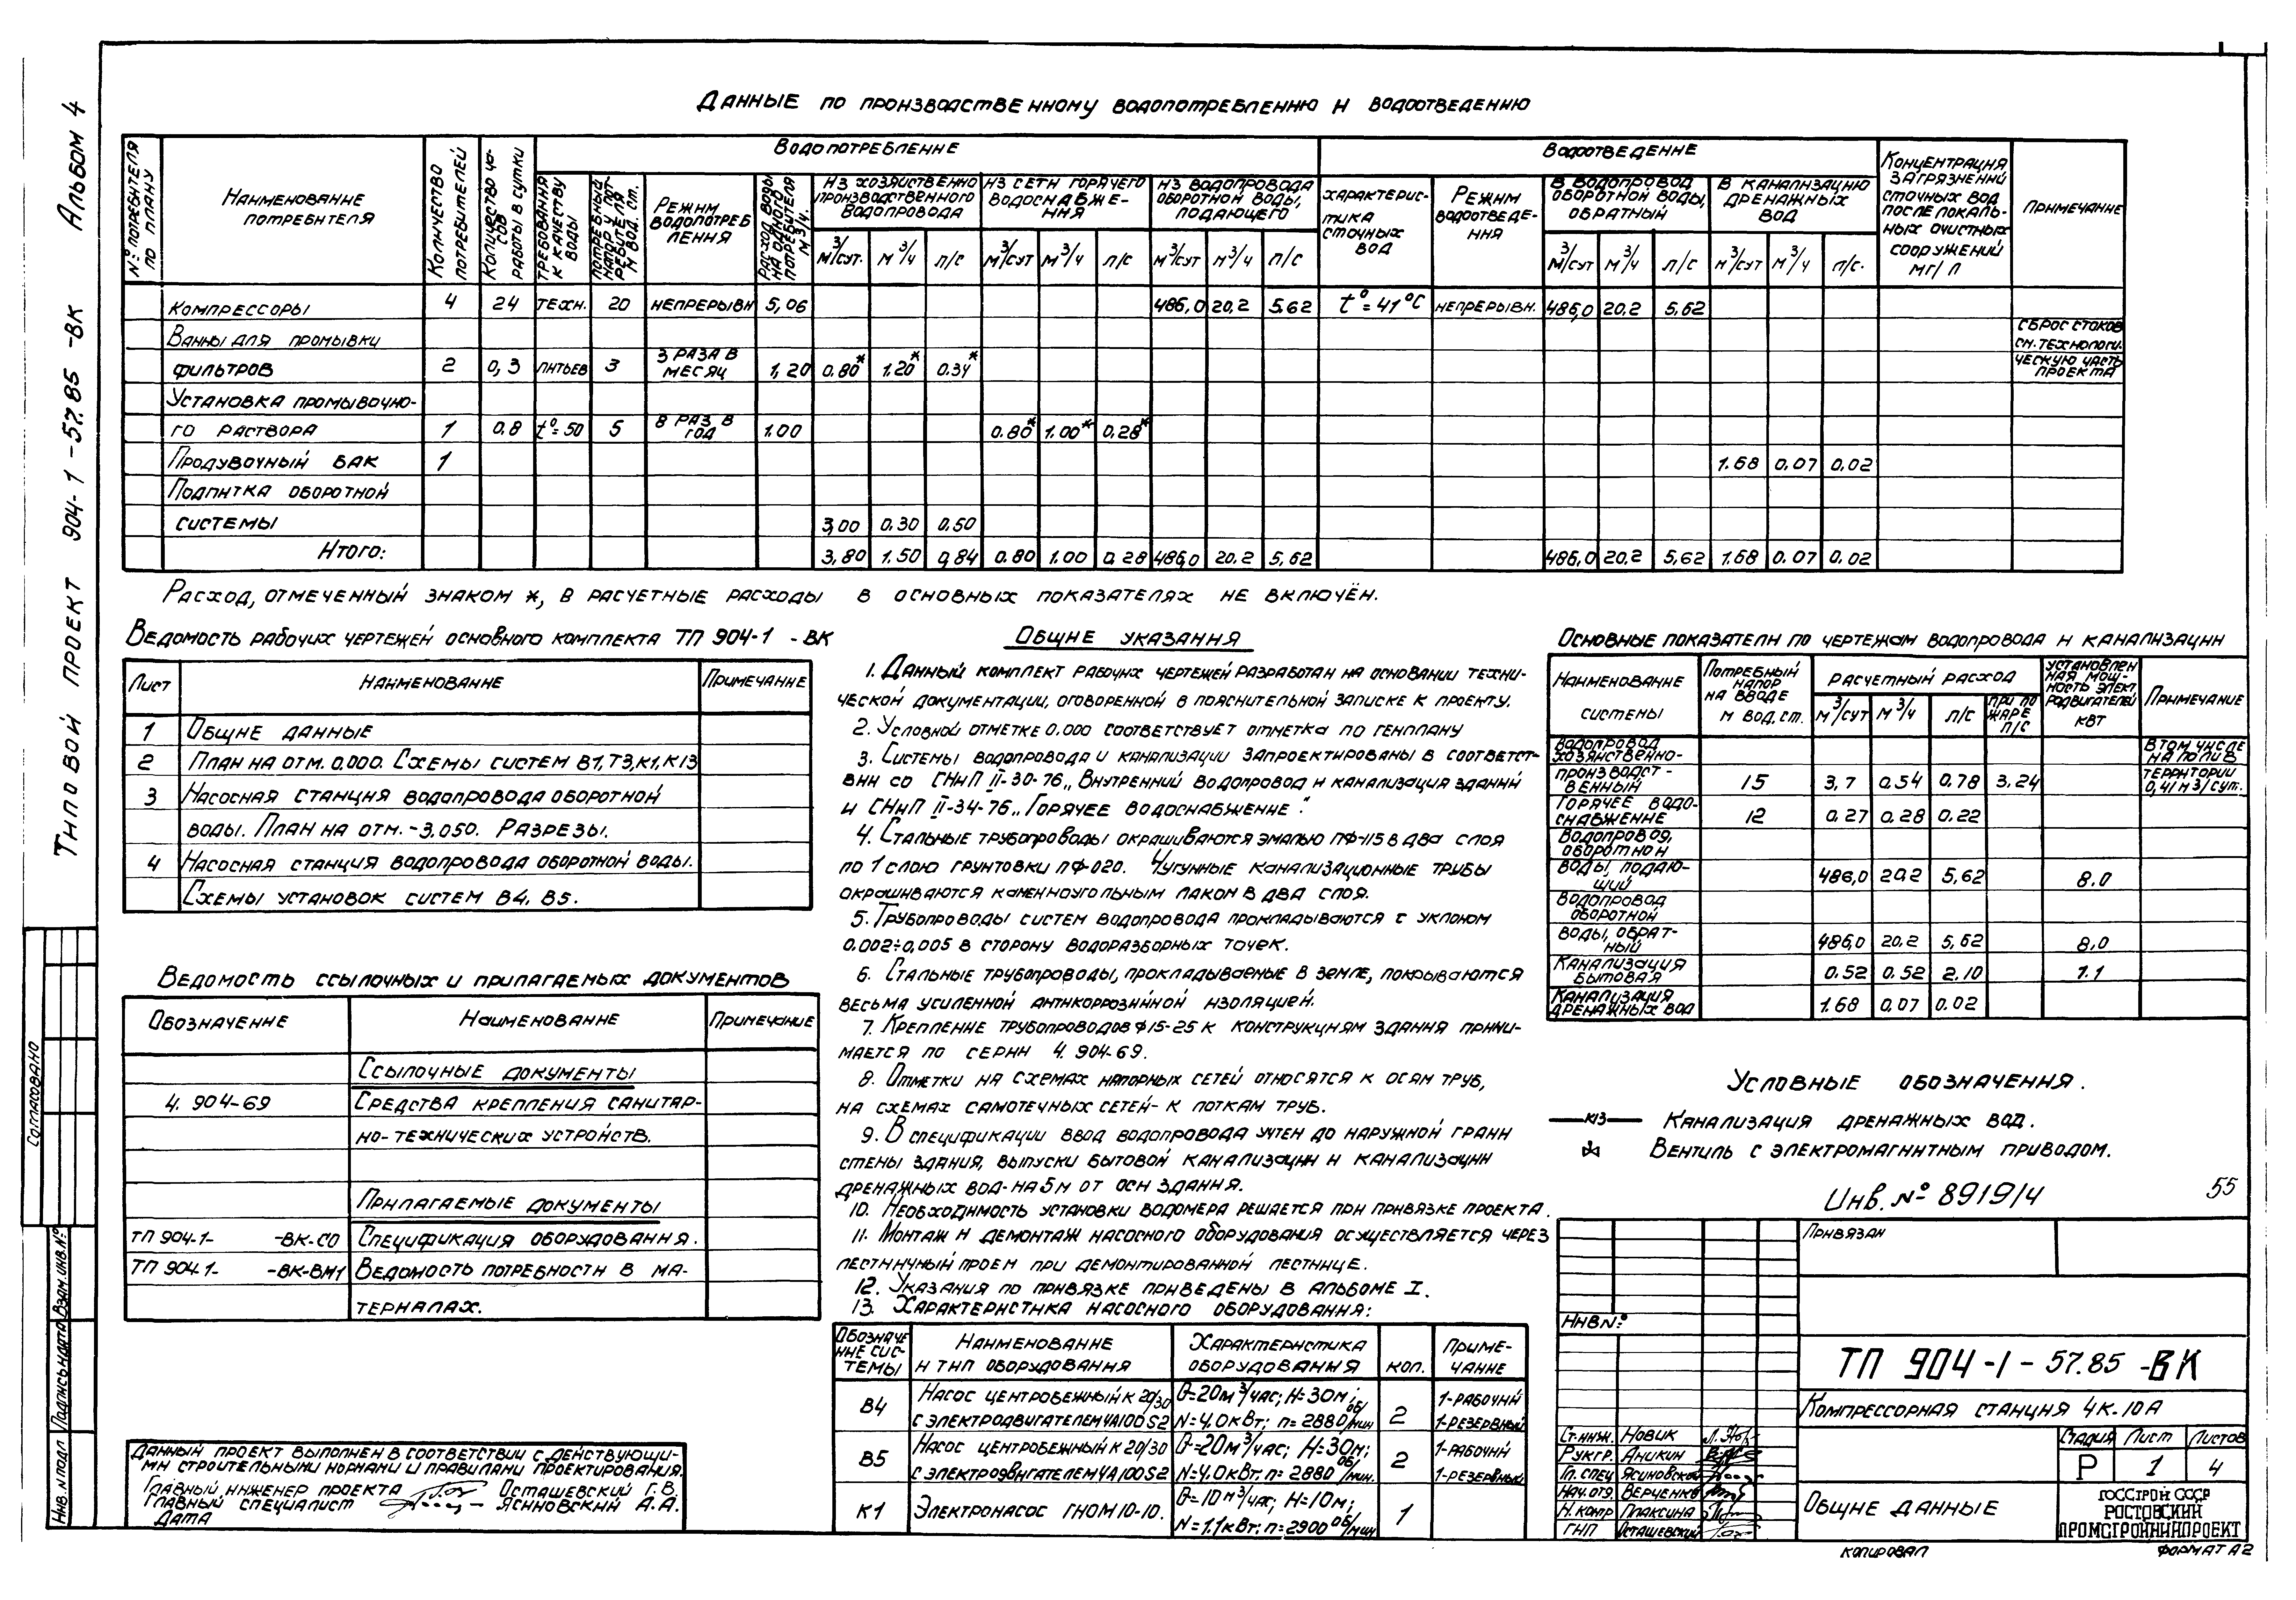 Альбом 4
Типовой проект 904-1-57.85 -ВК
Данные по производственному водопотреблению и водоотведению
№ потребителя по плану
Наименование потребителя
Количество потребителей
Количество часов работы в сутки
Требования к качеству воды
Потребный напор у потребителя м вод. ст.
Режим водопотребления
Расход воды на одного потребителя м³/ч.
Водопотребление
Водоотведение
Из хозяйственно производственного водопровода
Из сети горячего водоснабжения
Из водопровода оборотной воды, подающего
Характеристика сточных вод
Режим водоотведения
В водопровод оборотной воды, обратный
В канализацию дренажных вод
Концентрация загрязнений сточных вод после локальных очистных сооружений мг/л
Примечание
м³/сут. м³/ч л/с м³/сут м³/ч л/с м³/сут м³/ч л/с м³/сут м³/ч л/с м³/сут м³/ч л/с.
Компрессоры 4 24 техн. 20 непрерывн 5,06 486,0 20,2 5,62 t°=41°С непрерывн. 486,0 20,2 5,62
Ванны для промывки
фильтров 2 0,3 питьев 3 3 раза в месяц 1,20 0.80* 1.20* 0.34* Сброс стоков см. технологическую часть проекта
Установка промывочно-
го раствора 1 0.8 t°=50 5 8 раз в год 1.00 0.80* 1.00* 0.28*
Продувочный бак 1 1.68 0,07 0,02
Подпитка оборотной
системы 3,00 0.30 0.50
Итого: 3,80 1.50 0,84 0.80 1.00 0,28 486,0 20.2 5,62 486,0 20,2 5,62 1.68 0.07 0.02
Расход, отмеченный знаком *, в расчетные расходы в основных показателях не включён.
Ведомость рабочих чертежей основного комплекта ТП 904-1 -ВК
Лист Наименование Примечание
1 Общие данные
2 План на отм. 0.000. Схемы систем В1, Т3, К1, К13
3 Насосная станция водопровода оборотной
воды. План на отм. -3,050. Разрезы.
4 Насосная станция водопровода оборотной воды.
Схемы установок систем В4, В5.
Ведомость ссылочных и прилагаемых документов
Обозначение Наименование Примечание
Ссылочные документы
4. 904-69 Средства крепления санитар-
но-технических устройств.
Прилагаемые документы
ТП 904-1- -ВК-СО Спецификация оборудования.
ТП 904-1- -ВК-ВМ1 Ведомость потребности в ма-
териалах.
Данный проект выполнен в соответствии с действующи-
ми строительными нормами и правилами проектирования.
Главный инженер проекта Осташевский Г.В.
Главный специалист Ясиновский А.А.
Дата
Общие указания
1. Данный комплект рабочих чертежей разработан на основании техни-
ческой документации, оговоренной в пояснительной записке к проекту.
2. Условной отметке 0.000 соответствует отметка по генплану
3. Системы водопровода и канализации запроектированы в соответст-
вии со СНиП II-30-76 „Внутренний водопровод и канализация зданий
и СНиП II-34-76 „Горячее водоснабжение".
4. Стальные трубопроводы окрашиваются эмалью ПФ-115 в два слоя
по 1 слою грунтовки ПФ-020. Чугунные канализационные трубы
окрашиваются каменноугольным лаком в два слоя.
5. Трубопроводы систем водопровода прокладываются с уклоном
0.002÷0,005 в сторону водоразборных точек.
6. Стальные трубопроводы, прокладываемые в земле, покрываются
весьма усиленной антикоррозийной изоляцией.
7. Крепление трубопроводов ф15-25 к конструкциям здания прини-
мается по серии 4. 904-69.
8. Отметки на схемах напорных сетей относятся к осям труб,
на схемах самотечных сетей- к лоткам труб.
9. В спецификации ввод водопровода учтен до наружной грани
стены здания, выпуски бытовой канализации и канализации
дренажных вод-на 5м от оси здания.
10. Необходимость установки водомера решается при привязке проекта.
11. Монтаж и демонтаж насосного оборудования осуществляется через
лестничный проем при демонтированной лестнице.
12. Указания по привязке приведены в альбоме I.
13. Характеристика насосного оборудования:
Обозначение системы Наименование и тип оборудования Характеристика оборудования кол. Примечание
В4 Насос центробежный К 20/30 с электродвигателем 4А100S2 Q=20м³/час; Н=30м; N=4,0кВт; n=2880 об/мин 2 1-рабочий 1-резервный
В5 Насос центробежный К 20/30 с электродвигателем 4А100S2 Q=20м³/час; Н=30м; N=4,0кВт; n=2880 об/мин. 2 1-рабочий 1-резервный
К1 Электронасос ГНОМ 10-10. Q=10м³/час; Н=10м; N=1.1кВт; n=2900 об/мин 1
Основные показатели по чертежам водопровода и канализации
Наименование системы
Потребный напор на вводе м вод. ст.
Расчетный расход
м³/сут м³/ч л/с при пожаре л/с
Установленная мощность элект. родвигателей кВт
Примечание
Водопровод хозяйственно-производственный 15 3,7 0,54 0,78 3,24 В том числе на полив территории 0,41м3/сут.
Горячее водоснабжение 12 0,27 0,28 0,22
Водопровод, оборотной воды, подающий 486,0 20,2 5,62 8.0
Водопровод оборотной воды, обратный 486,0 20,2 5,62 8,0
Канализация бытовая 0.52 0.52 2.10 1.1
Канализация дренажных вод 1.68 0,07 0.02
Условные обозначения.
К13 Канализация дренажных вод.
Вентиль с электромагнитным приводом.
Инв. № 8919/4
55
Привязан
Инв №
ТП 904-1-57.85 -ВК
Компрессорная станция 4К-10А
Ст.инж. Новик
Рук.гр. Аникин
Гл. спец Ясиновский
Нач. отд. Верченко
Н. контр Плаксина
ГИП Осташевский
Общие данные
Стадия Лист Листов
Р 1 4
Госстрой СССР
Ростовский
Промстройниипроект
Копировал
Формат А2
Согласовано
Инв. № подл Подпись и дата Взам. инв. №